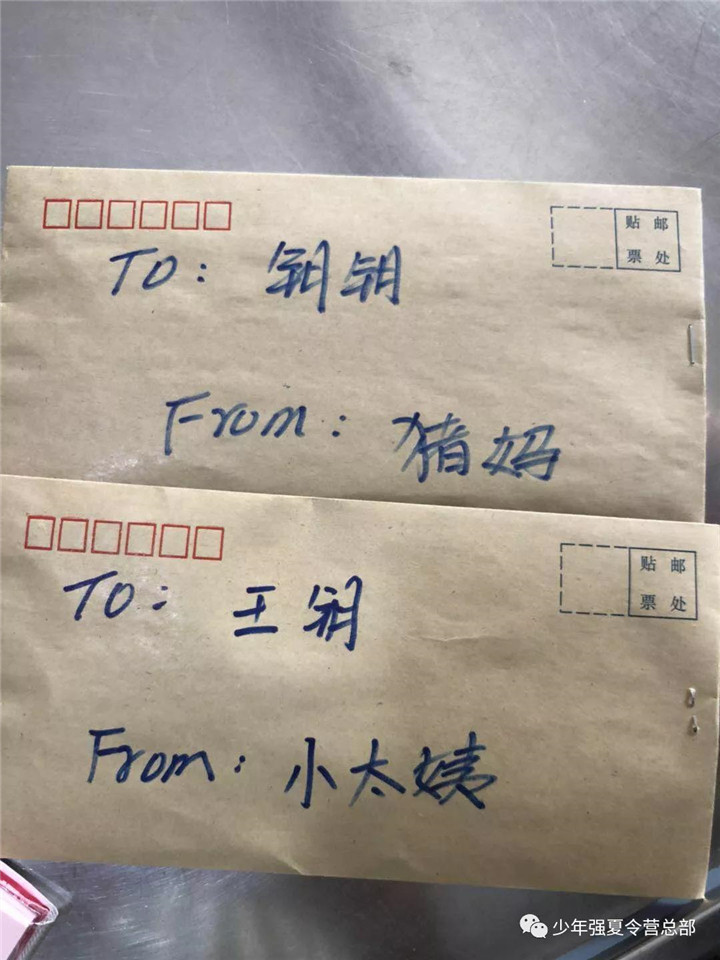 贴 邮
票 处
TO: 钥钥
From: 猪妈
贴 邮
票 处
TO: 王钥
From: 小太姨
少年强夏令营总部